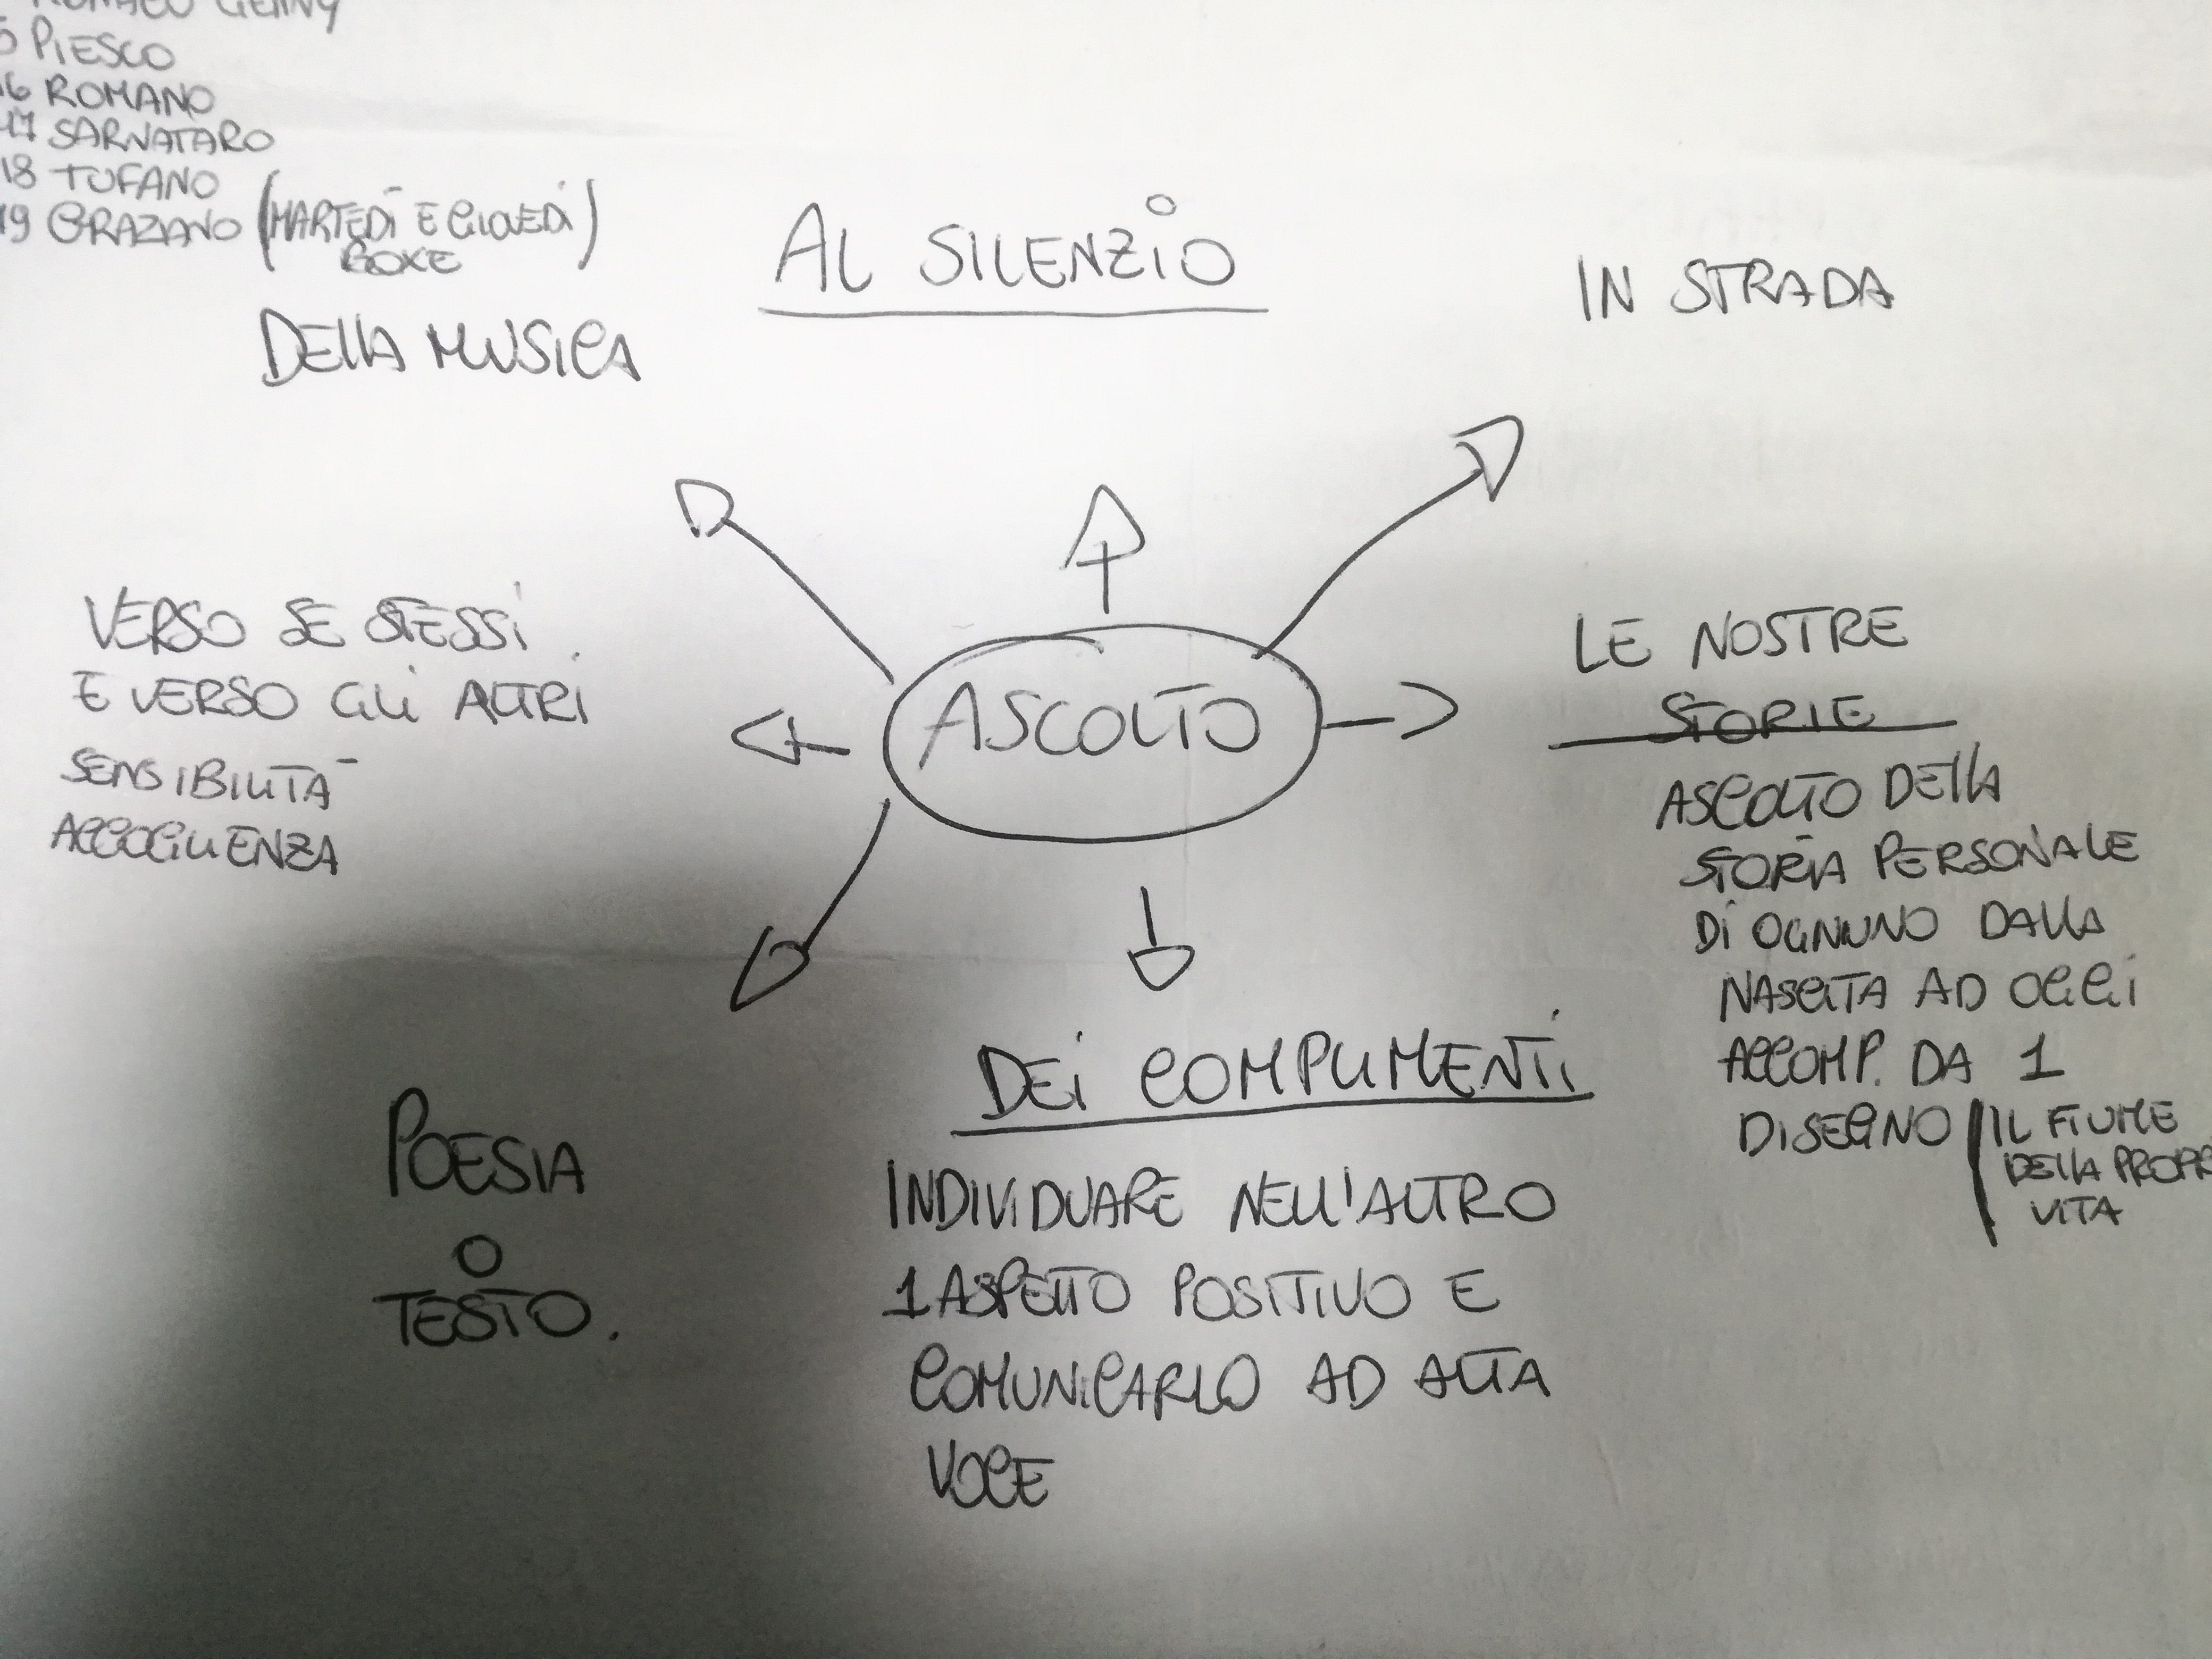 ROMAEO GENNY
5 PIESCO
16 ROMANO
17 SARNATARO
18 TUFANO
19 GRAZIANO (MARTEDÌ E GIOVEDÌ)
BOXE
DELLA MUSICA
AL SILENZIO
IN STRADA
VERSO SE STESSI
E VERSO GLI ALTRI
SENSIBILITÀ
ACCOGLIENZA
ASCOLTO
LE NOSTRE
STORIE
ASCOLTO DELLA
STORIA PERSONALE
DI OGNUNO DALLA
NASCITA AD OGGI
ACCOMP. DA 1
DISEGNO
IL FIUME
DELLA PROPR
VITA
POESIA
O
TESTO.
DEI COMPLIMENTI
INDIVIDUARE NELL'ALTRO
1 ASPETTO POSITIVO E
COMUNICARLO AD ALTA
VOCE